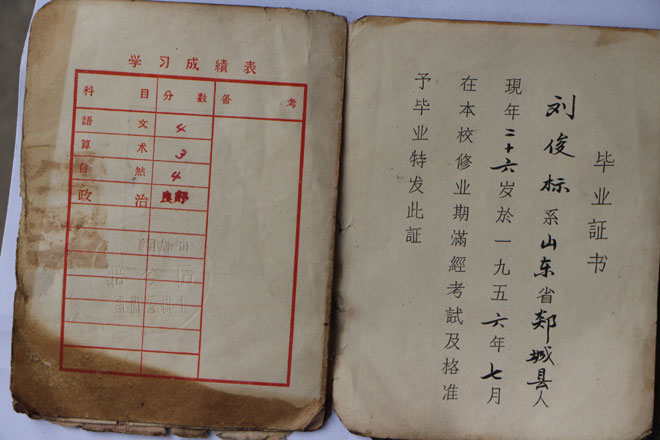 学习成績表
科目 分数 备考
語文 4
算术 3
自然 4
政治 良好
毕业証书
刘俊标系山东省郯城县人
現年二十六岁於一九五六年七月
在本校修业期滿經考試及格准
予毕业特发此証